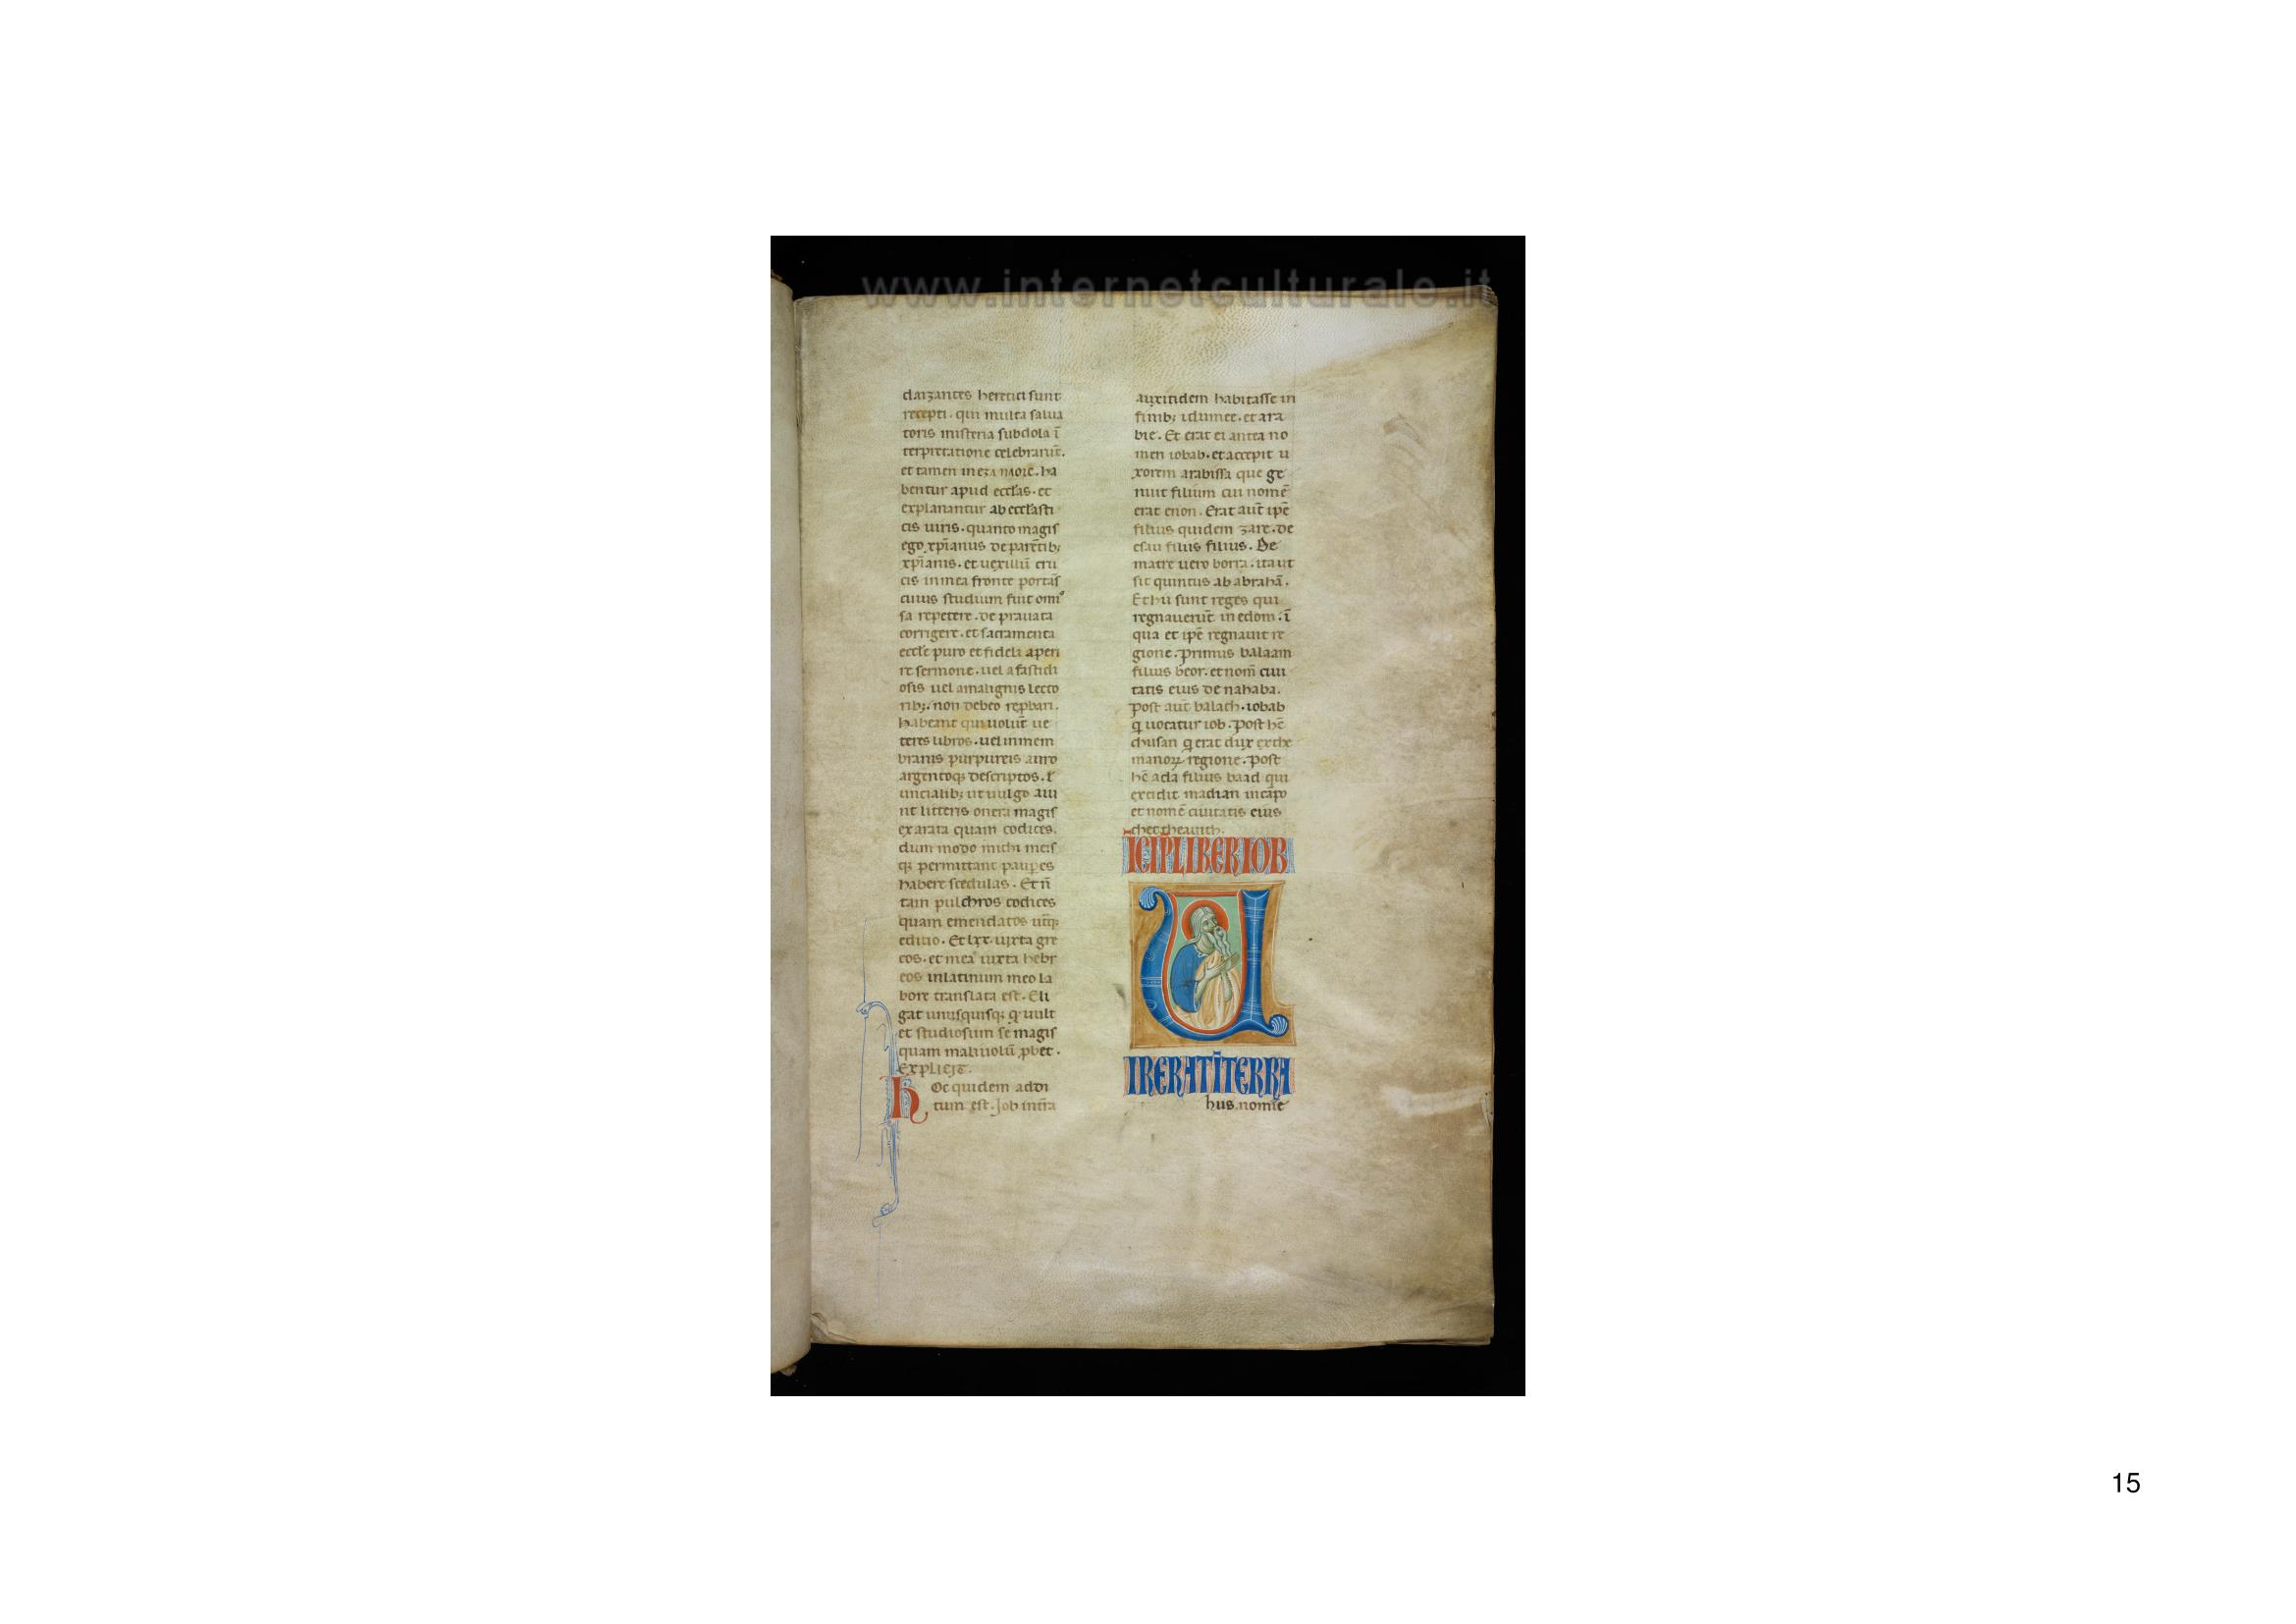 www.internetculturale.it
daizantes heretici sunt
recepti. qui multa salua
toris misteria subdola ī
terpretatione celebrarūt.
et tamen in eza more. ha
bentur apud eccl̄as. et
explanantur ab eccl̄asti
cis uiris. quanto magis
ego xp̄ianus de parētib;
xp̄ianis. et uexillū cru
cis in mea fronte portās
cuius studium fuit omi
sa repetere. deprauata
corrigere. et sacramenta
eccl̄e puro et fideli aperi
re sermone. uel a fastidi
osis uel a malignis lecto
rib;. non debeo rep̱bari.
habeant qui uolūt ue
teres libros. uel in mem
branis purpureis auro
argentoq; descriptos. ł
uncialib; ut uulgo aiu
nt litteris onera magis
exarata quam codices.
dum modo michi meis
q; permittant paup̱es
habere scedulas. Et n̄
tam pulchros codices
quam emendatos ut̄q;
editio. Et lxx. iuxta gre
cos. et mea iuxta hebr
eos in latinum meo la
bore translata est. Eli
gat unusquisq; q uult
et studiosum se magis
quam maliuolū p̱bet.
Explicit.
hOc quidem addi
tum est. Job int̄ra
auxitidem habitasse in
finib; idumee. et ara
bie. Et erat ei antea no
men iobab. et accepit u
xorem arabissa que ge
nuit filium cui nomē
erat enon. Erat aut̄ ip̄e
filius quidem zare. de
esau filiis filius. De
matre uero borra. ita ut
sit quintus ab abrahā.
Et hii sunt reges qui
regnauerūt in edom. ī
qua et ip̄e regnauit re
gione. primus balaam
filius beor. et nom̄ ciui
tatis eius denahaba.
post aut̄ balach. iobab
q uocatur iob. post hē
chusan q erat dux ex the
manoꝝ regione. post
hē ada filius baad qui
excidit madian in cāpo
et nomē ciuitatis eius
chettheauith.
ĪCIP̄ LIBER IOB
U
IR ERAT Ī TERRA
hus nomīe
15